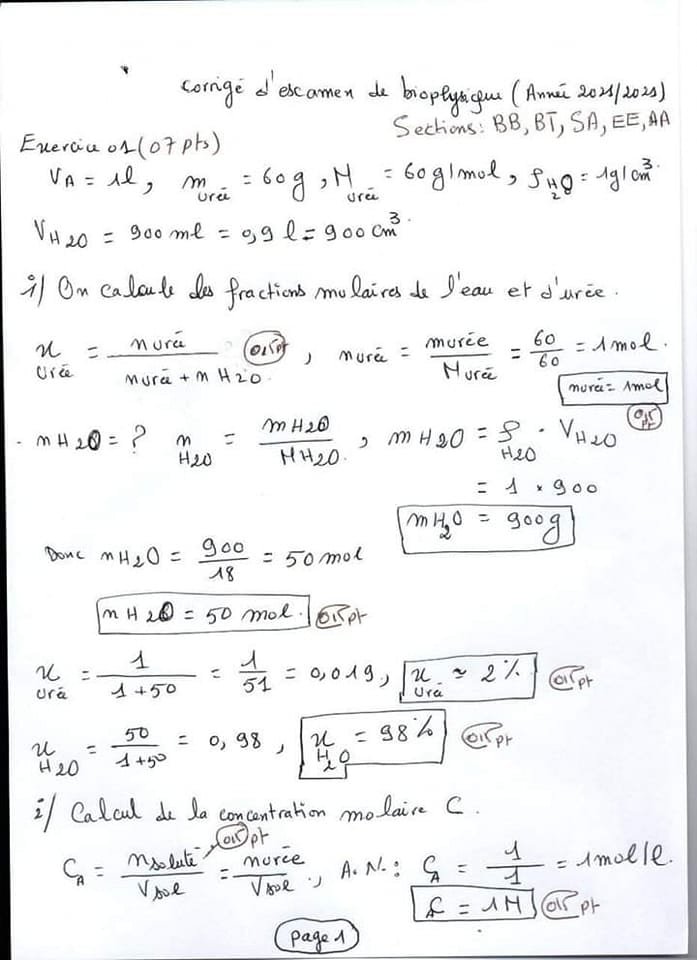 corrigé d'examen de biophysique (Année 2021/2021)
Sections: BB, BT, SA, EE, AA
Exercice 01 (07 pts)
V_A = 1l, m_urée = 60g, M_urée = 60g/mol, ρ_H2O = 1g/cm³
V_H2O = 900 ml = 0,9 l = 900 cm³
1/ On calcule des fractions molaires de l'eau et d'urée.
x_urée = nurée / (nurée + nH2O) 0,5pt, nurée = murée / Murée = 60/60 = 1 mol.
nurée = 1mol 0,5 pt
- nH2O = ? n_H2O = mH2O / MH2O, mH2O = ρ_H2O . V_H2O
= 1 × 900
mH2O = 900g
Donc nH2O = 900/18 = 50 mol
nH2O = 50 mol. 0,5 pt
x_urée = 1/(1+50) = 1/51 = 0,019, x_urée ≃ 2% 0,5 pt
x_H2O = 50/(1+50) = 0,98, x_H2O = 98% 0,5 pt
2/ Calcul de la concentration molaire C.
C_A = nsoluté / Vsol 0,5 pt = nurée / Vsol, A.N.: C_A = 1/1 = 1mol/l.
C = 1M 0,5 pt
page 1